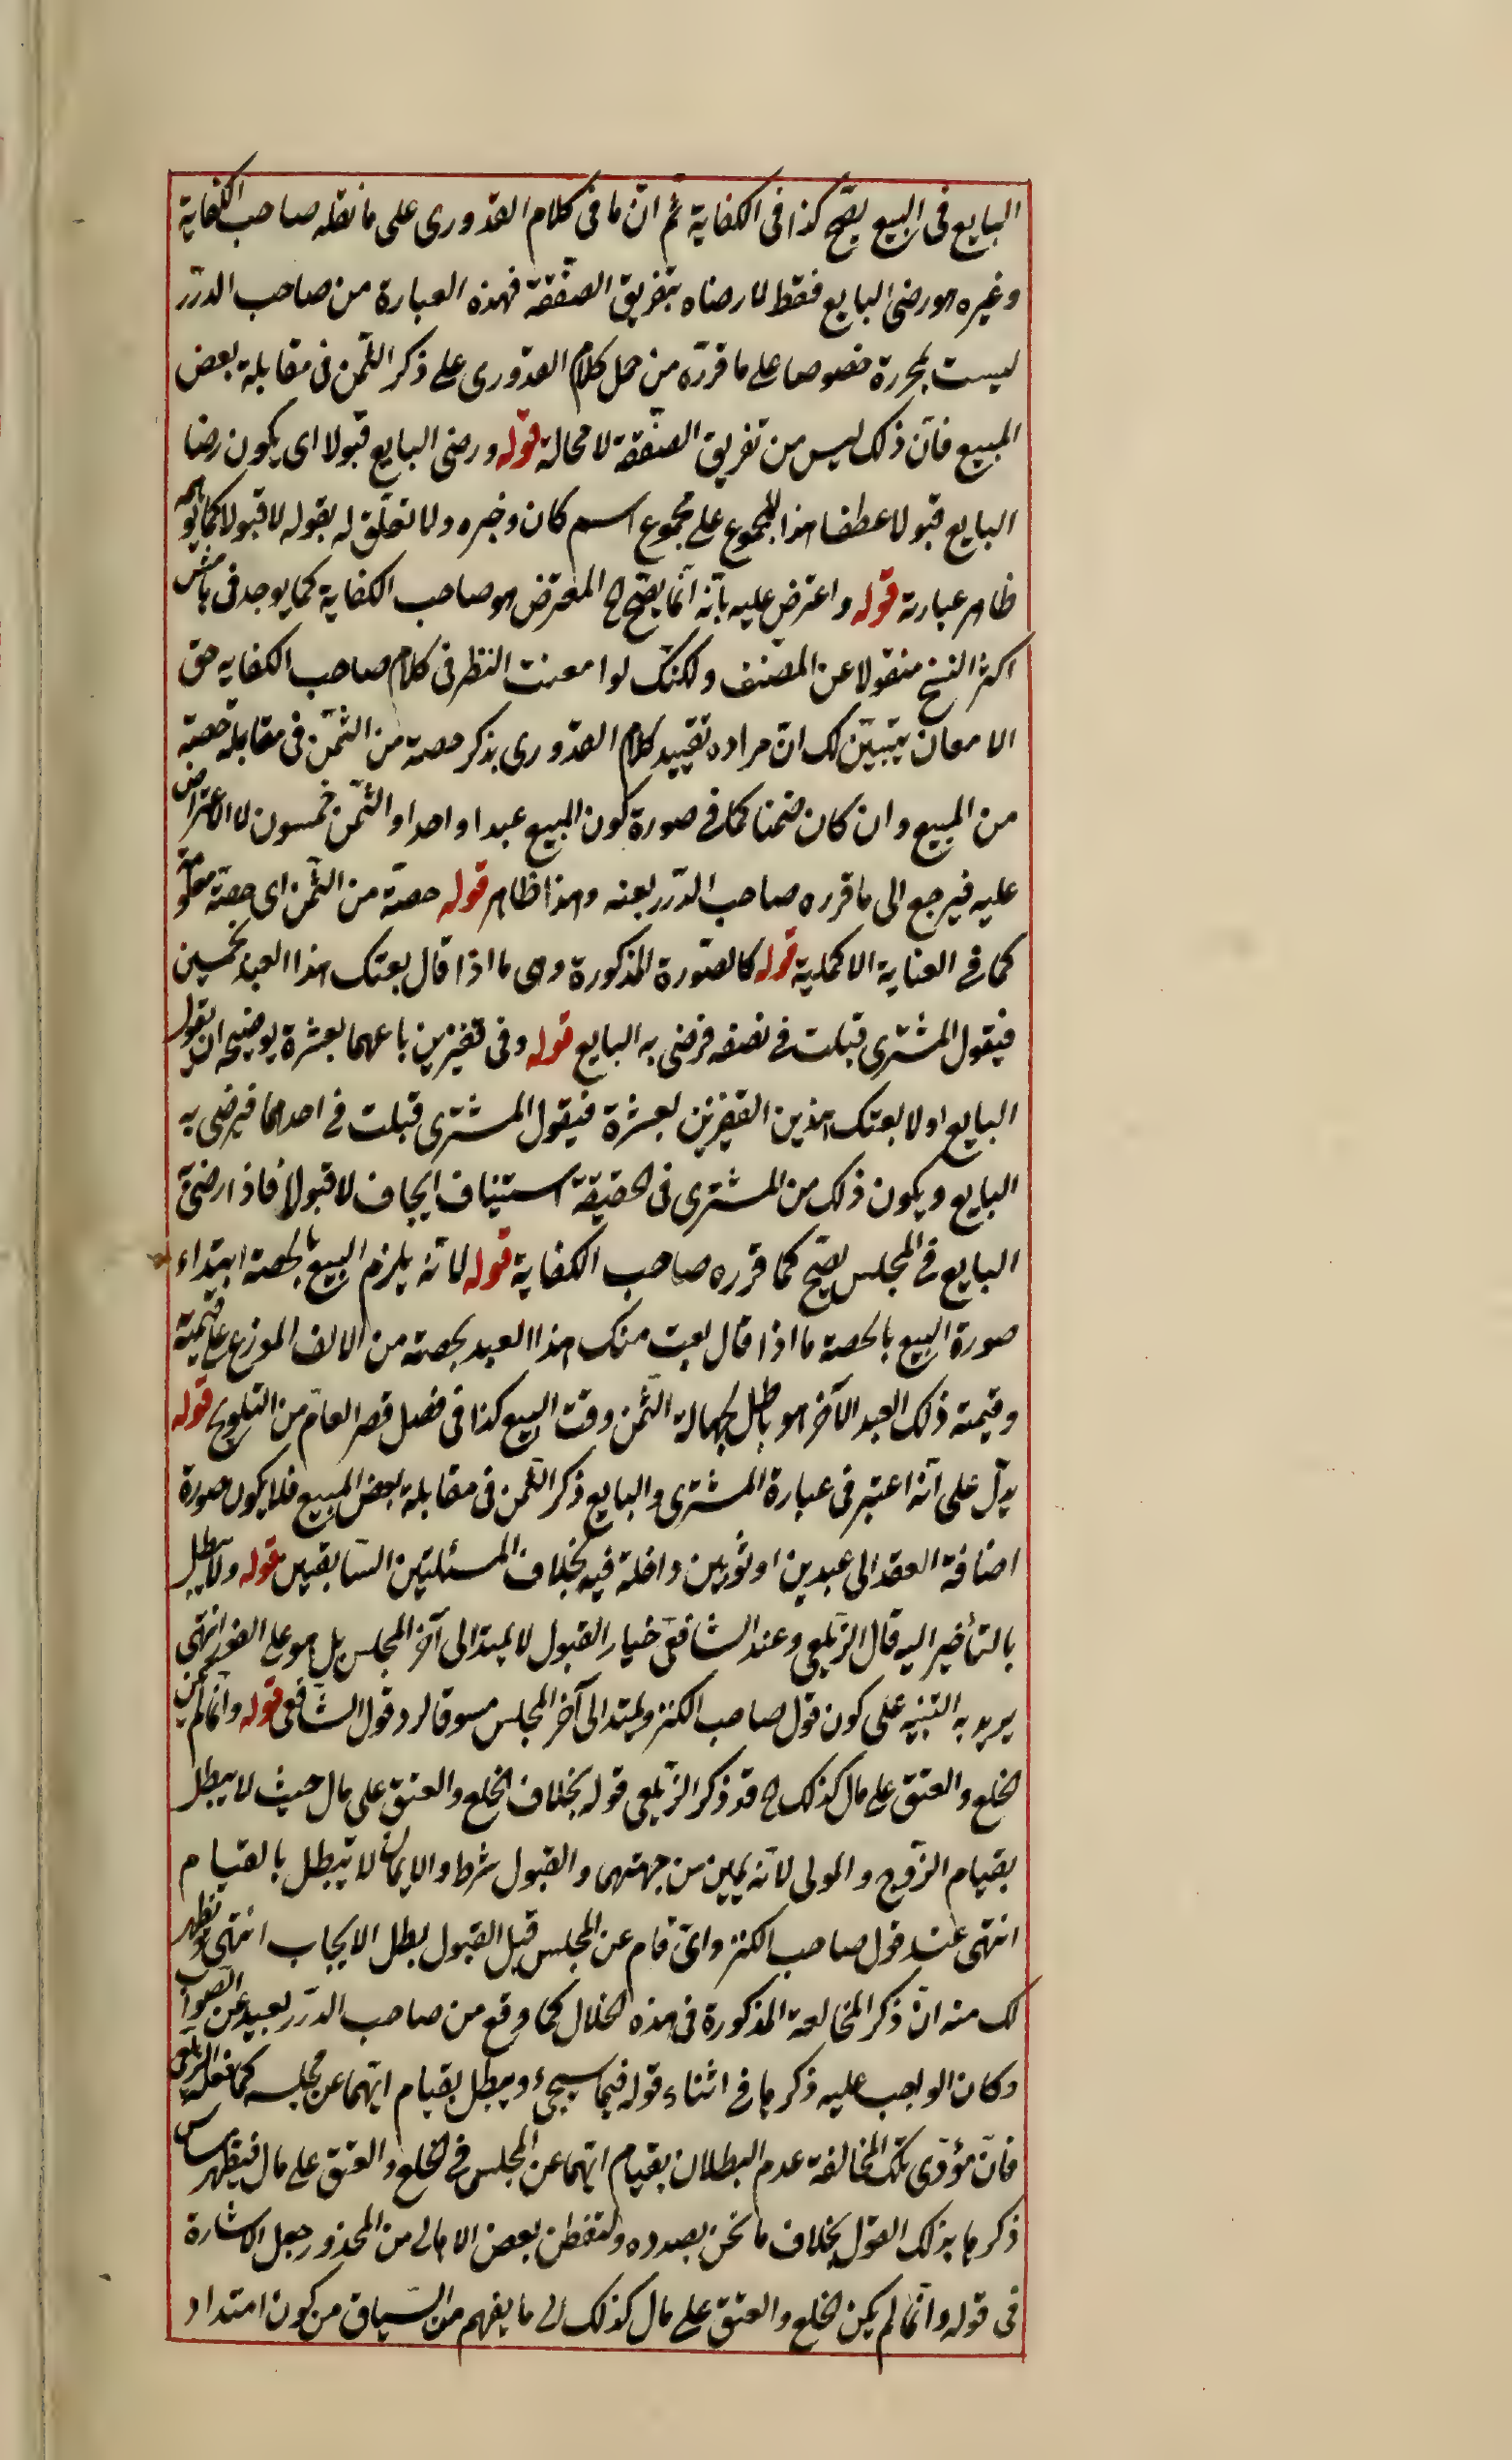 البايع فى البيع يصّح كذا فى الكفاية ثم انّ ما فى كلام القدورى على ما نقله صاحب الكفاية
وغيره هو رضى البايع فقط لا رضاه بتفريق الصّفقة فهذه العبارة من صاحب الدرر
ليست بمحررة خصوصا على ما قررّه من حمل كلام القدّورى على ذكر الثّمن فى مقابلة بعض
المبيع فانّ ذلك ليس من تفريق الصّفقة لا محالة قوله ورضى البايع قبولا اى يكون رضا
البايع قبولا عطفا هذا المجموع على مجموع اسم كان وخبره ولا تعلّق له بقوله لا قبولا كما يوهمه
ظاهر عبارته قوله واعترض عليه بأنّه انّما يصّح الخ المعترض هو صاحب الكفاية كما يوجد فى هامش
اكثر النسخ منقولا عن المصّنف ولكنّك لو امعنت النظر فى كلام صاحب الكفايه حق
الامعان يتبيّن لك انّ مراده تقييد كلام القدّورى بذكر حصة من الثّمن فى مقابلة حصة
من المبيع وان كان ضمنا كما فى صورة كون المبيع عبدا واحدا والثّمن خمسون لا الاعتراض
عليه فيرجع الى ما قرره صاحب الدّرر بعينه وهذا ظاهر قوله حصّة من الثّمن اى حصّة معلومة
كما فى العناية الاكملية قوله كالصّورة المذكورة وهى ما اذا قال بعتك هذا العبد بخمسين
فيقول المشترى قبلت فى نصفه فرضى به البايع قوله وفى قفيزين باعهما بعشرة يوضيحه ان يقول
البايع اولا بعتك هذين القفيزين بعشرة فيقول المشترى قبلت فى احدهما فيرضى به
البايع ويكون ذلك من المشترى فى الحقيقة استيناف ايجاف لا قبولا فاذا رضى
البايع فى المجلس يصّح كما قرره صاحب الكفاية قوله لانّه يلزم البيع بالحصة ابتداء
صورة البيع بالحصة ما اذا قال بعت منك هذا العبد بحصته من الالف الموزع على قيمته
وقيمة ذلك العبد الآخر هو باطل لجهالة الثّمن وقت البيع كذا فى فصل قصر العامّ من التلويح قوله
يدلّ على انّه اعتبر فى عبارة المشترى والبايع ذكر الثّمن فى مقابلة بعض المبيع فلا يكون صورة
اضافة العقد الى عبدين او ثوبين داخلة فيه بخلاف المسئلتين السّابقين قوله ولا يبطل
بالتأخير اليه قال الزّيلعى وعند الشافعىّ خيار القبول لا يمتد الى آخر المجلس بل هو على الفور انتهى
يريد به التنبيه على كون قول صاحب الكنز ويمتد الى آخر المجلس مسوقا لرد قول الشّافعى قوله وانّما لم يكن
الخلع والعتق على مال كذلك الخ قد ذكر الزيّلعى قوله بخلاف الخلع والعتق على مال حيث لا يبطل
بقيام الزّوج والمولى لانّه يمين من جهتهما والقبول شرط والايمان لا تبطل بالقيام
انتهى عند قول صاحب الكنز وايّ قام عن المجلس قبل القبول بطل الايجاب انتهى ويظهر
لك منه انّ ذكر المخالعة المذكورة فى هذه الخلال كما وقع من صاحب الدّرر بعيد عن الصّواب
وكان الواجب عليه ذكرها فى اثناء قوله فيما سيجىء ويبطل بقيام ايّهما عن مجلسه كما فعله الزيلعى
فانّ مؤدّى تلك المخالفة عدم البطلان بقيام ايّهما عن المجلس فى الخلع والعتق على مال فيظهر مساس
ذكرها بذلك القول بخلاف ما نحن بصدده ولتفطن بعض الاهالى من المحذور جعل الاشارة
فى قوله وانّما لم يكن الخلع والعتق على مال كذلك الى ما يفهم من السّياق من كون امتداد